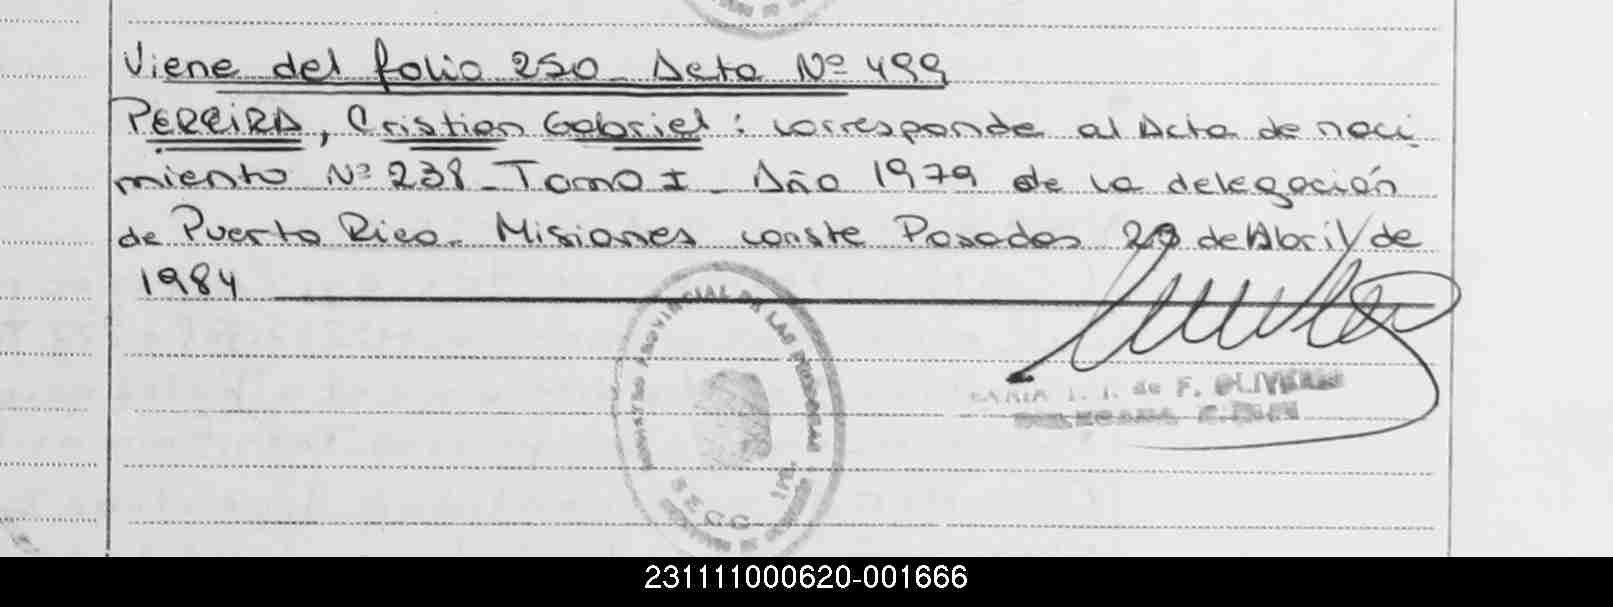 Viene del folio 250 - Acta Nº 499
PEREIRA, Cristian Gabriel: corresponde al Acta de naci
miento Nº 238 - Tomo I - Año 1979 de la delegación
de Puerto Rico - Misiones conste Posadas 29 de Abril de
1984
REGISTRO PROVINCIAL DE LAS PERSONAS
SECC
de F. OLIVEIRA
231111000620-001666